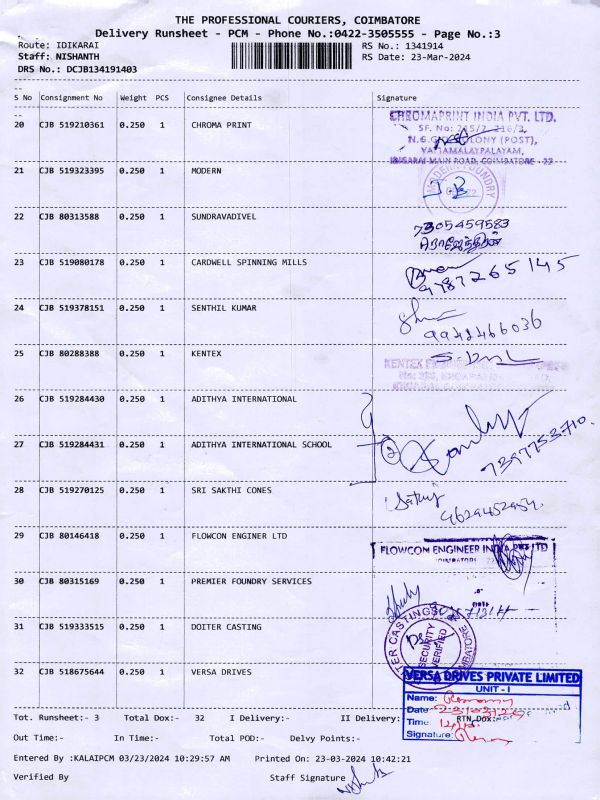 THE PROFESSIONAL COURIERS, COIMBATORE
Delivery Runsheet - PCM - Phone No.:0422-3505555 - Page No.:3
Route: IDIKARAI
RS No.: 1341914
Staff: NISHANTH
RS Date: 23-Mar-2024
DRS No.: DCJB134191403
S No Consignment No Weight PCS Consignee Details Signature
20 CJB 519210361 0.250 1 CHROMA PRINT
CHROMAPRINT INDIA PVT. LTD.
SF. No: 215/2, 216/2,
N.G.G.O. COLONY (POST),
VATTAMALAIPALAYAM,
IDIGARAI MAIN ROAD, COIMBATORE - 22
21 CJB 519323395 0.250 1 MODERN
MODERN FOUNDRY
22 CJB 80313588 0.250 1 SUNDRAVADIVEL
7305459583
23 CJB 519080178 0.250 1 CARDWELL SPINNING MILLS
9787265145
24 CJB 519378151 0.250 1 SENTHIL KUMAR
9942466036
25 CJB 80288388 0.250 1 KENTEX
KENTEX
26 CJB 519284430 0.250 1 ADITHYA INTERNATIONAL
27 CJB 519284431 0.250 1 ADITHYA INTERNATIONAL SCHOOL
2
7397753710
28 CJB 519270125 0.250 1 SRI SAKTHI CONES
9629452954
29 CJB 80146418 0.250 1 FLOWCON ENGINER LTD
FLOWCOM ENGINEER INDIA PVT LTD
30 CJB 80315169 0.250 1 PREMIER FOUNDRY SERVICES
31 CJB 519333515 0.250 1 DOITER CASTING
SECURITY
VERIFIED
32 CJB 518675644 0.250 1 VERSA DRIVES
VERSA DRIVES PRIVATE LIMITED
UNIT - I
Name:
Date:
Time:
Signature:
Tot. Runsheet:- 3 Total Dox:- 32 I Delivery:- II Delivery: RTN Dox:
Out Time:- In Time:- Total POD:- Delvy Points:-
Entered By :KALAIPCM 03/23/2024 10:29:57 AM Printed On: 23-03-2024 10:42:21
Verified By Staff Signature